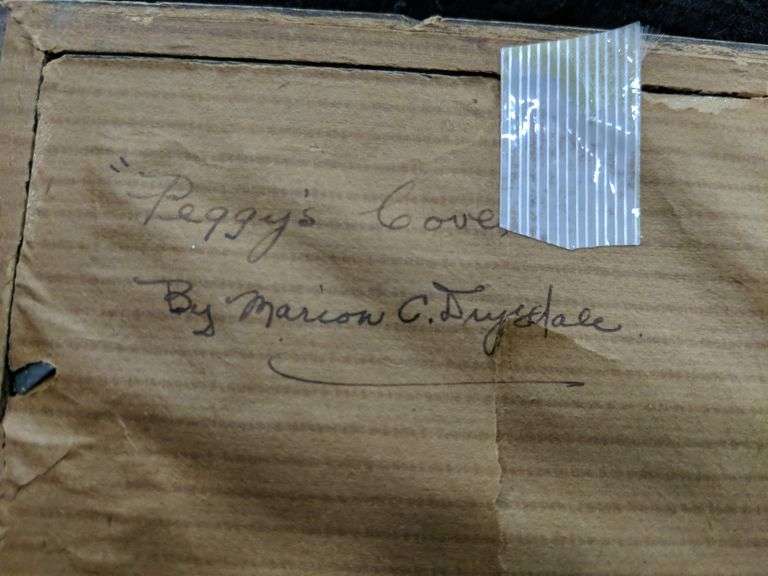 "Peggy's Cove
By Marion C. Drysdale.